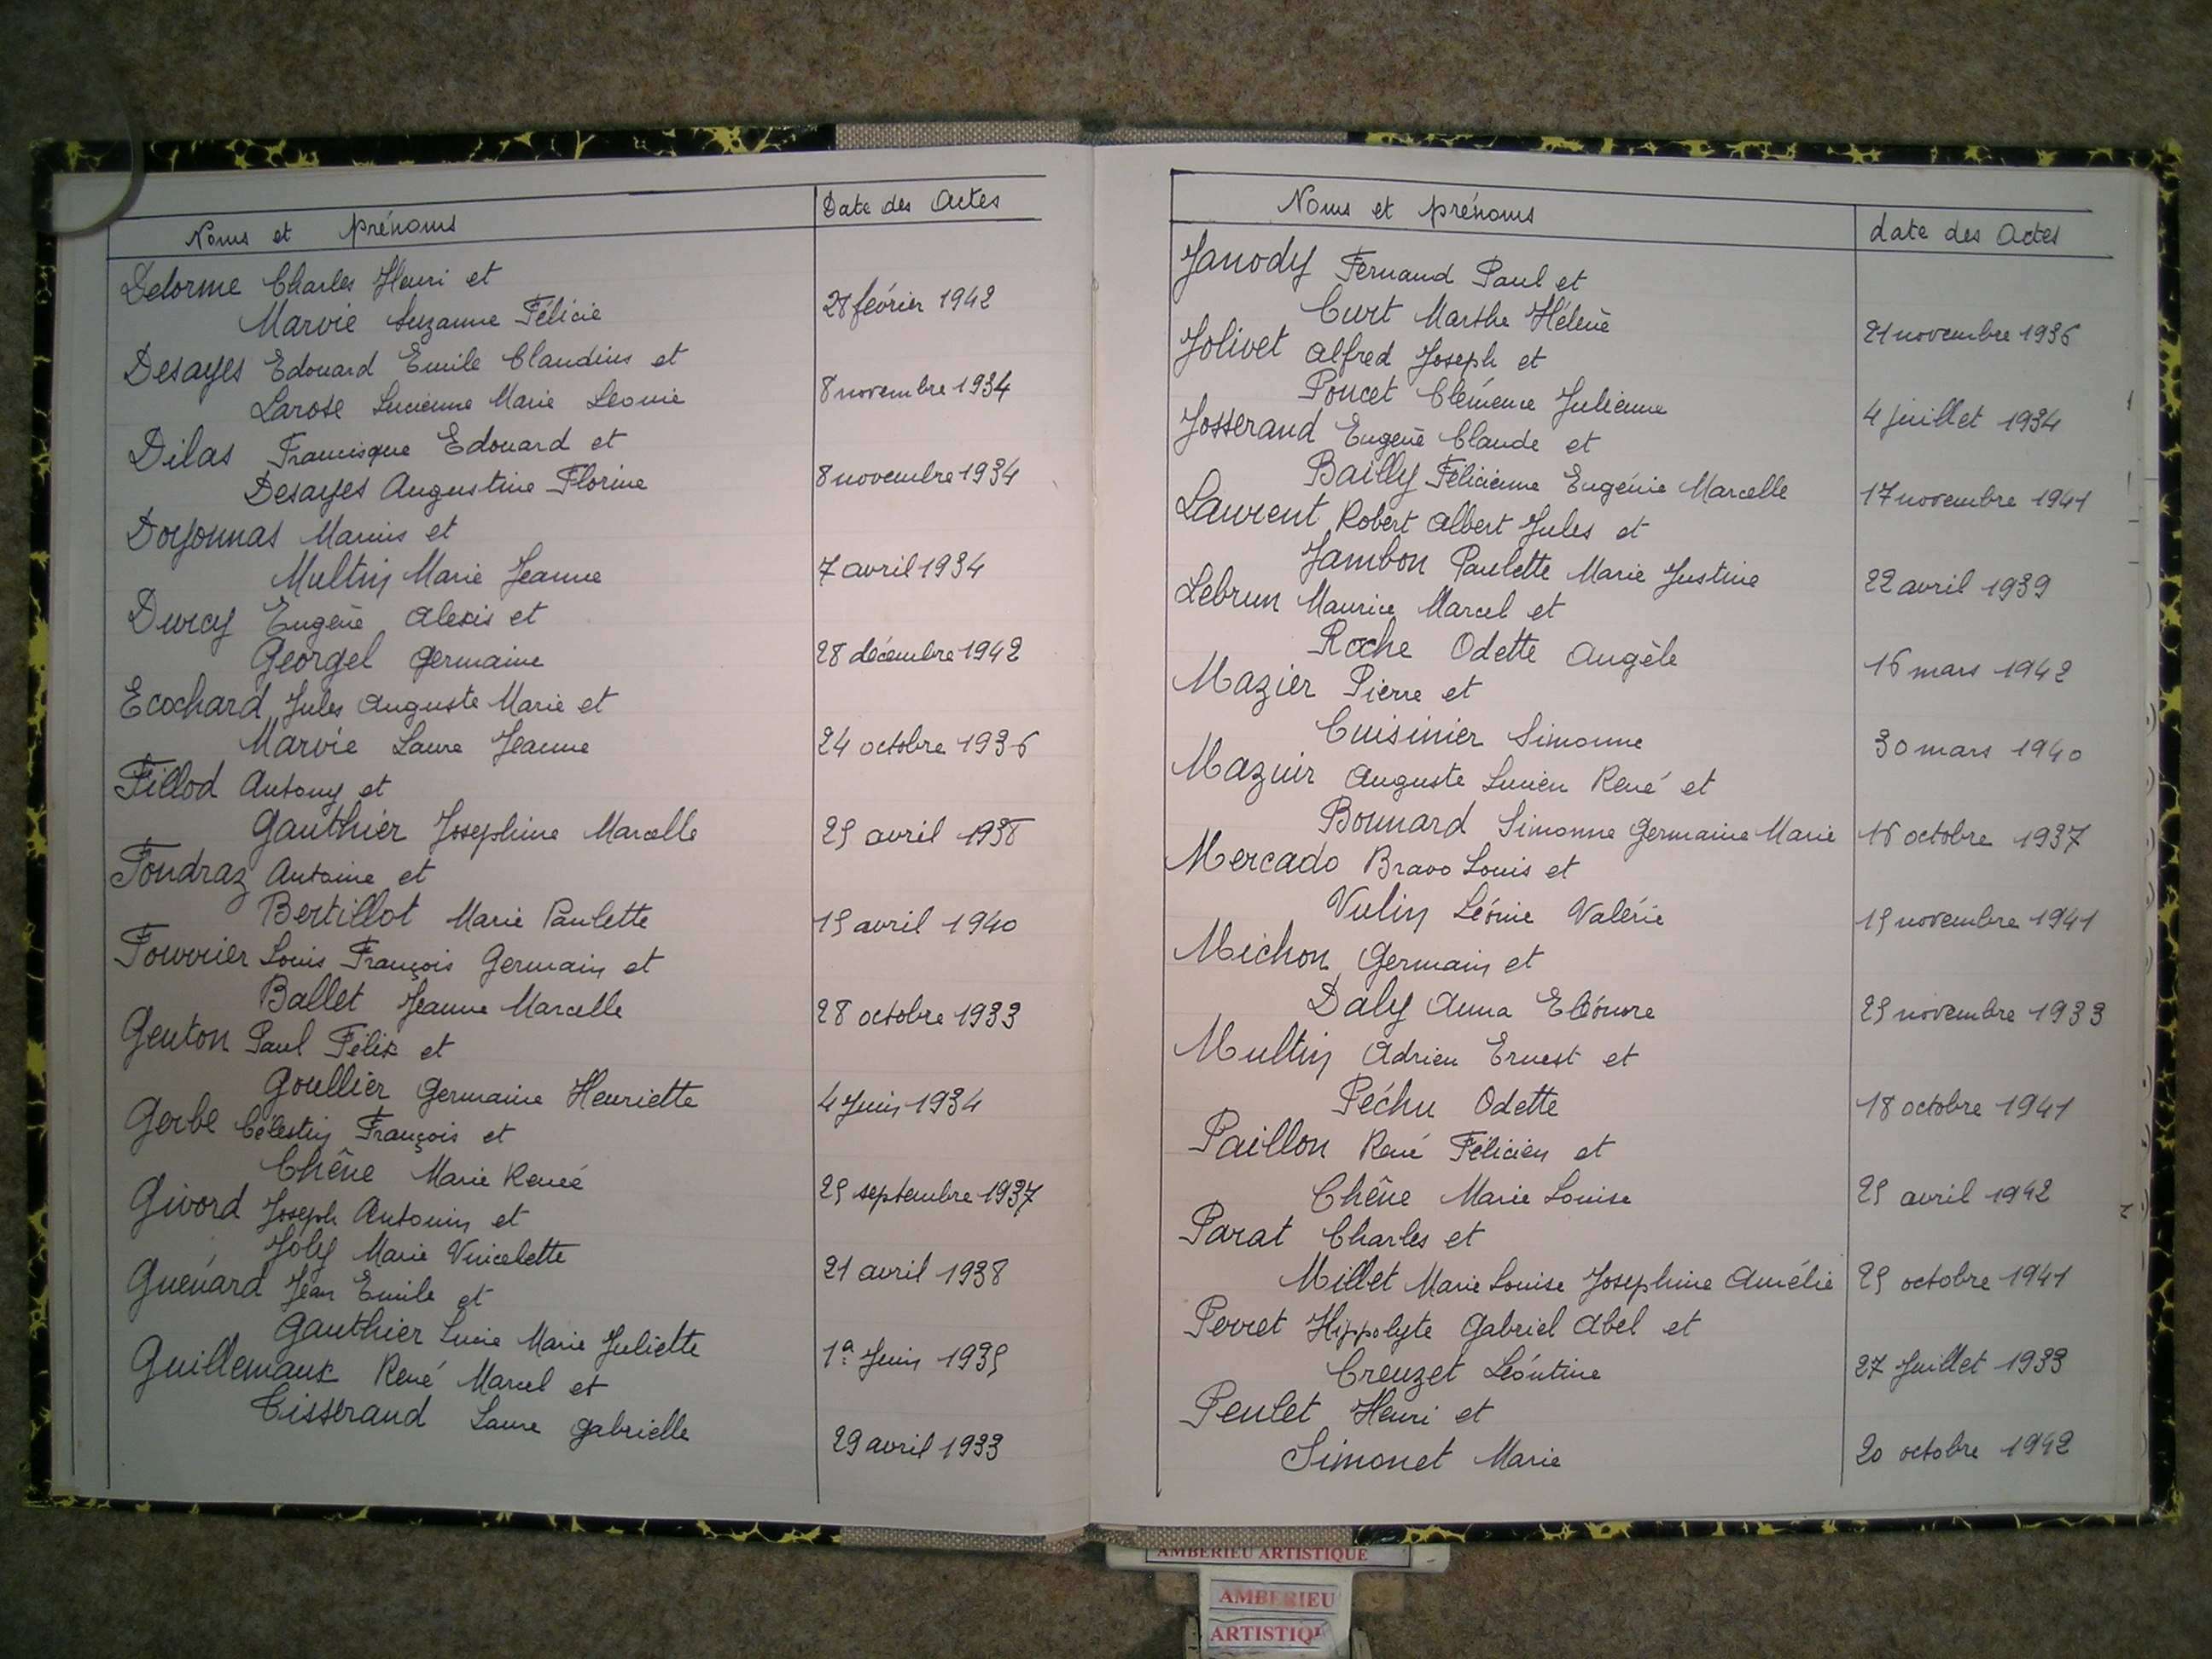 Noms et prénoms
Date des Actes
Delorme Charles Henri et
Marvie Suzanne Félicie
28 février 1942
Desayes Edouard Emile Claudius et
Larose Lucienne Marie Leonie
8 novembre 1934
Dilas Francisque Edouard et
Desayes Augustine Florine
8 novembre 1934
Doyonnas Marius et
Multin Marie Jeanne
7 avril 1934
Durcy Eugène Alexis et
Georgel Germaine
28 décembre 1942
Ecochard Jules Auguste Marie et
Marvie Laure Jeanne
24 octobre 1936
Fillod Antony et
Gauthier Josephine Marcelle
25 avril 1938
Fondraz Antoine et
Bertillot Marie Paulette
15 avril 1940
Fourrier Louis François Germain et
Ballet Jeanne Marcelle
28 octobre 1933
Genton Paul Félix et
Goullier Germaine Henriette
4 Juin 1934
Gerbe Célestin François et
Chêne Marie Renée
25 septembre 1937
Givord Joseph Antonin et
Joly Marie
21 avril 1938
Guénard Jean Emile et
Gauthier Lucie Marie Juliette
Juin 1935
Guillemaux René Marcel et
Tisserand Laure Gabrielle
29 avril 1933
Noms et prénoms
date des Actes
Janody Fernand Paul et
Curt Marthe Hélène
21 novembre 1936
Jolivet Alfred Joseph et
Poncet Clémence Julienne
4 juillet 1934
Josserand Eugène Claude et
Bailly Félicienne Eugénie Marcelle
17 novembre 1941
Laurent Robert Albert Jules et
Jambon Paulette Marie Justine
22 avril 1939
Lebrun Maurice Marcel et
Roche Odette Angèle
16 mars 1942
Mazier Pierre et
Cuisinier Simonne
30 mars 1940
Mazuir Auguste Lucien René et
Bonnard Simonne Germaine Marie
16 octobre 1937
Mercado Bravo Louis et
Vulin Léonie Valérie
15 novembre 1941
Michon Germain et
Daly Anna Eléonore
25 novembre 1933
Multin Adrien Ernest et
Péchu Odette
18 octobre 1941
Paillon René Félicien et
Chêne Marie Louise
25 avril 1942
Parat Charles et
Millet Marie Louise Josephine Amélie
25 octobre 1941
Perret Hippolyte Gabriel Abel et
Creuzet Léontine
27 Juillet 1933
Peulet Henri et
Simonet Marie
20 octobre 1942
AMBERIEU ARTISTIQUE
AMBERIEU